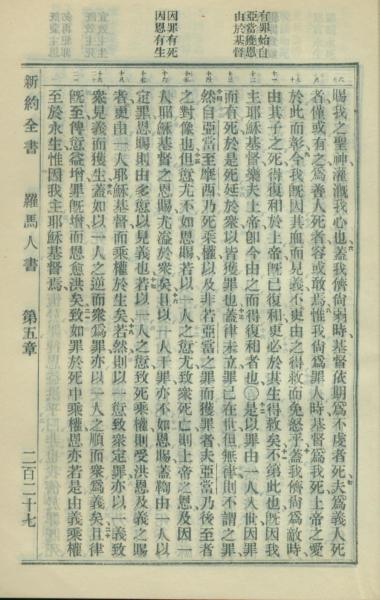 有罪始自
亞當應恩
由於基督
因罪有死
因恩有生
六賜我之聖神灌漑我心也蓋我儕尙弱時基督依期爲不虔者死夫爲義人死
者僅或有之爲善人死者容或敢焉惟我尙爲罪人時基督爲我死上帝之愛
於此而彰今我旣因其血而見義不更由之得救而免怒乎蓋我儕尙爲敵時
由其子之死得復和於上帝旣已復和更必於其生得救矣不第此也旣因我
主耶穌基督樂夫上帝卽今由之而得復和者也〇是以罪由一人入世因罪
而有死於是死延於衆以皆獲罪也蓋律未立罪已在世但無律則不謂之罪
然自亞當至摩西乃死秉權以及非若亞當之罪而獲罪者夫亞當乃後至者
之對像也但愆尤不如恩賜若以一人之愆尤致衆死亡則上帝之恩及因一
人耶穌基督之恩賜尤溢於衆矣且以一人干罪亦不如恩賜蓋鞫由一人以
定罪恩賜則由多愆以見義也若以一人之愆致死乘權則受洪恩及義之賜
者更由一人耶穌基督而乘權於生矣若然則以一愆致衆定罪亦以一義致
衆見義而獲生蓋如以一人之逆而衆爲罪亦以一人之順而衆爲義矣且律
旣至俾愆益增罪旣增而恩愈洪矣致如罪於死中乘權恩亦若是由義乘權
至於永生惟因我主耶穌基督焉
新約全書 羅馬人書 第五章 二百二十七